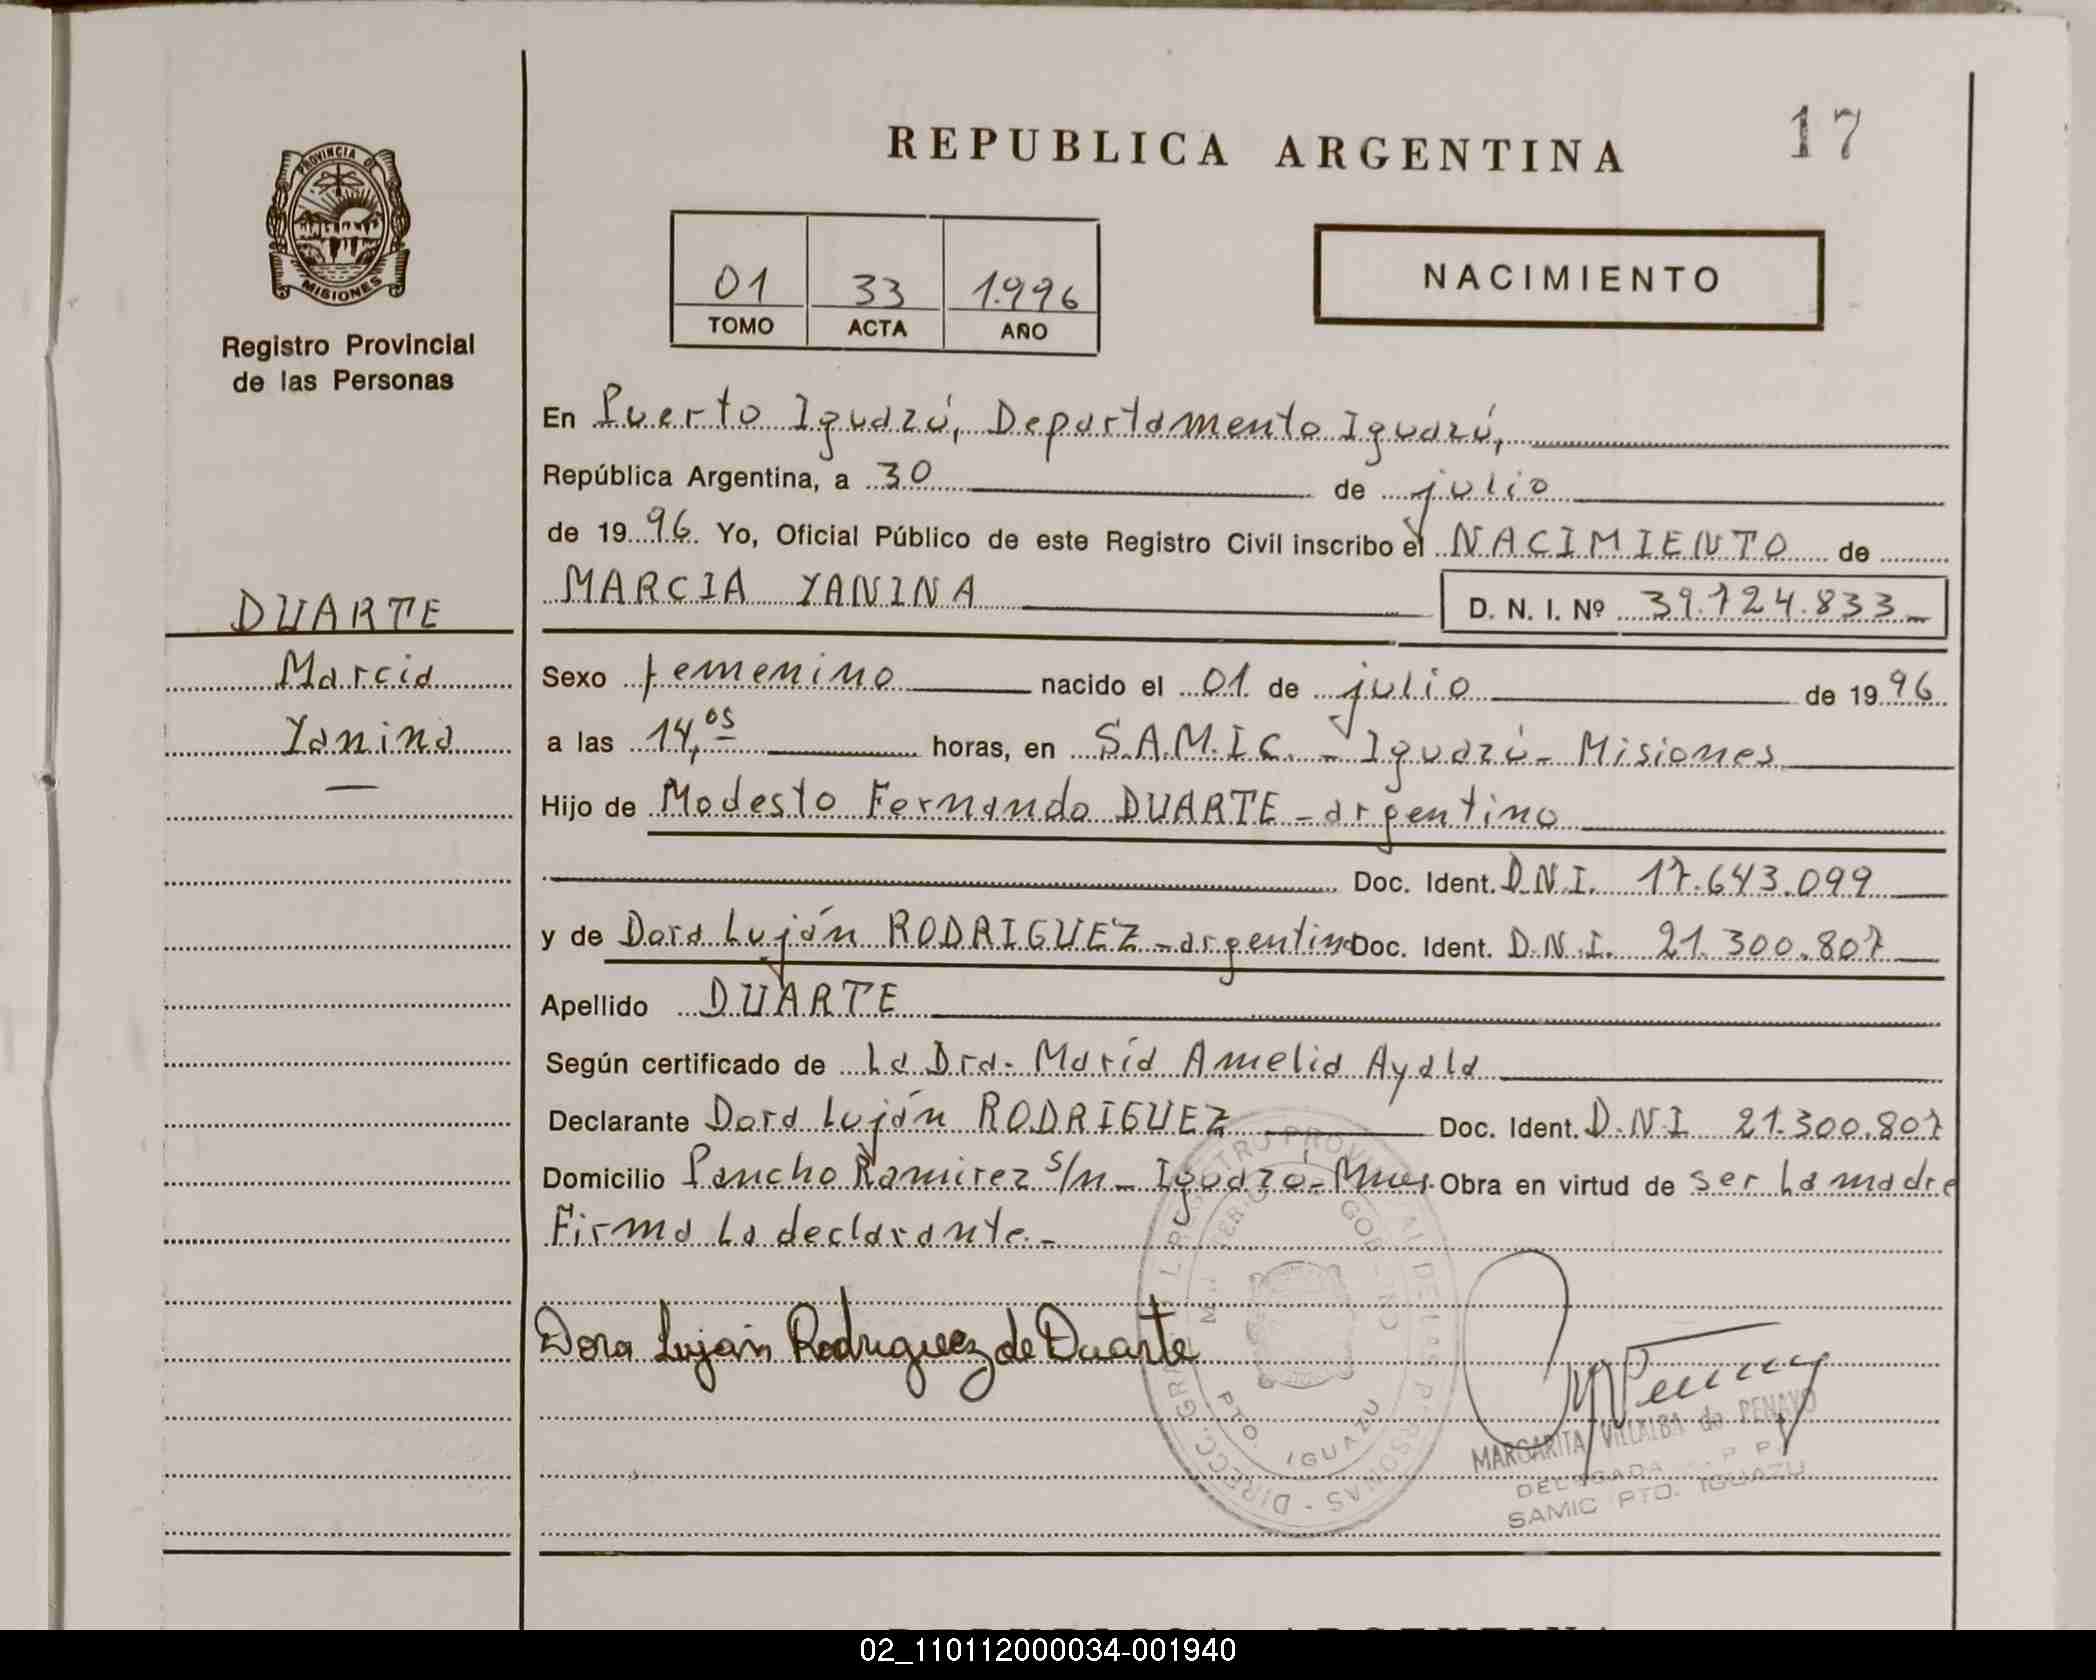 17
REPUBLICA ARGENTINA
PROVINCIA DE
MISIONES
Registro Provincial
de las Personas
01 33 1.996
TOMO ACTA AÑO
NACIMIENTO
En Puerto Iguazú, Departamento Iguazú,
República Argentina, a 30 de julio
de 1996 Yo, Oficial Público de este Registro Civil inscribo el NACIMIENTO de
MARCIA YANINA D. N. I. Nº 39.724.833
DUARTE
Marcia
Yanina
Sexo femenino nacido el 01 de julio de 1996
a las 14,05 horas, en S.A.M.I.C. - Iguazú - Misiones
Hijo de Modesto Fernando DUARTE - argentino
Doc. Ident. D.N.I. 17.643.099
y de Dora Luján RODRIGUEZ - argentina Doc. Ident. D.N.I. 21.300.807
Apellido DUARTE
Según certificado de La Dra. María Amelia Ayala
Declarante Dora Luján RODRIGUEZ Doc. Ident. D.N.I 21.300.807
Domicilio Pancho Ramirez s/n - Iguazú - Mnes. Obra en virtud de ser La madre
Firma La declarante.-
Dora Luján Rodriguez de Duarte
PTO. IGUAZU
MARGARITA VILLALBA de PENAYO
DELEGADA
SAMIC PTO. IGUAZU
02_110112000034-001940